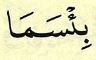 بِئْسَمَا